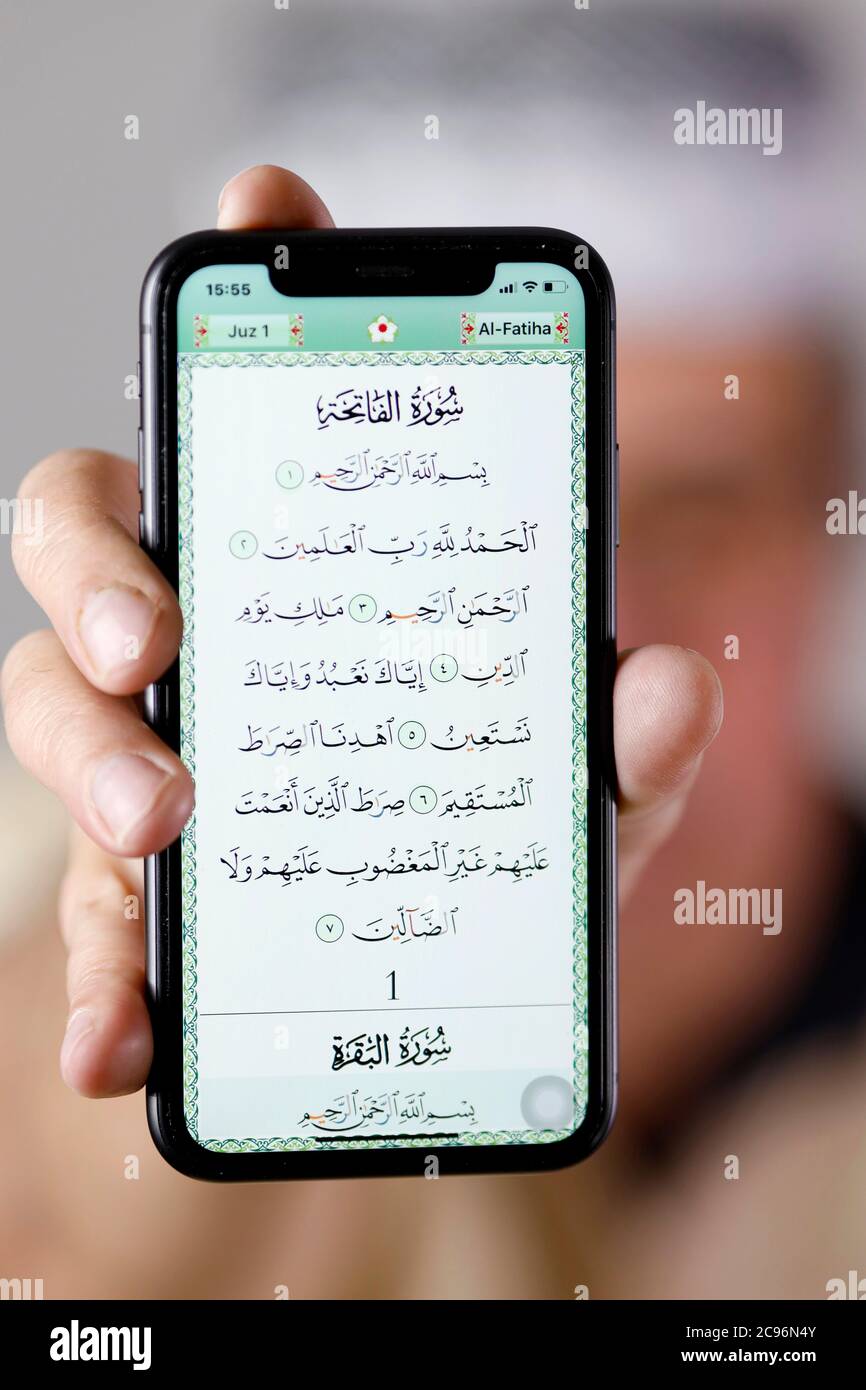 15:55
Juz 1
Al-Fatiha
سُورَةُ الفَاتِحَةِ
بِسْمِ ٱللَّهِ ٱلرَّحْمَٰنِ ٱلرَّحِيمِ ١
ٱلْحَمْدُ لِلَّهِ رَبِّ ٱلْعَٰلَمِينَ ٢
ٱلرَّحْمَٰنِ ٱلرَّحِيمِ ٣ مَٰلِكِ يَوْمِ
ٱلدِّينِ ٤ إِيَّاكَ نَعْبُدُ وَإِيَّاكَ
نَسْتَعِينُ ٥ ٱهْدِنَا ٱلصِّرَٰطَ
ٱلْمُسْتَقِيمَ ٦ صِرَٰطَ ٱلَّذِينَ أَنْعَمْتَ
عَلَيْهِمْ غَيْرِ ٱلْمَغْضُوبِ عَلَيْهِمْ وَلَا
ٱلضَّآلِّينَ ٧
1
سُورَةُ البَقَرَةِ
بِسْمِ ٱللَّهِ ٱلرَّحْمَٰنِ ٱلرَّحِيمِ
alamy
alamy
alamy
alamy
Image ID: 2C96N4Y
www.alamy.com